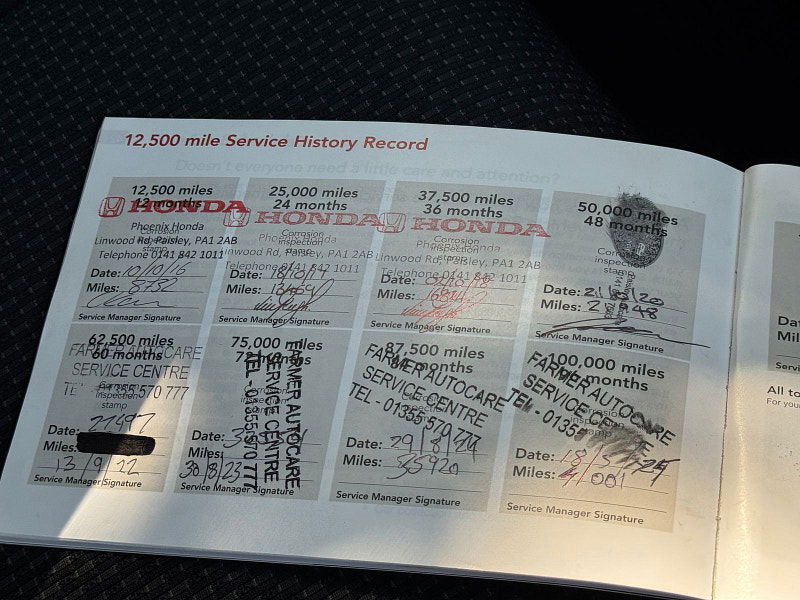 12,500 mile Service History Record
Doesn't everyone need a little care and attention?
12,500 miles
12 months
HONDA
Phoenix Honda
Corrosion
inspection
stamp
Linwood Rd, Paisley, PA1 2AB
Telephone 0141 842 1011
Date: 10/10/16
Miles: 8732
Service Manager Signature
25,000 miles
24 months
HONDA
Phoenix Honda
Corrosion
inspection
stamp
Linwood Rd, Paisley, PA1 2AB
Telephone 0141 842 1011
Date: 18/10/17
Miles:
Service Manager Signature
37,500 miles
36 months
HONDA
Phoenix Honda
Corrosion
inspection
stamp
Linwood Rd, Paisley, PA1 2AB
Telephone 0141 842 1011
Date:
Miles:
Service Manager Signature
50,000 miles
48 months
Corrosion
inspection
stamp
Date:
Miles:
Service Manager Signature
62,500 miles
60 months
FARMER AUTOCARE
SERVICE CENTRE
TEL - 01355 570 777
Corrosion
inspection
stamp
Date: 27497
Miles:
13/9/22
Service Manager Signature
75,000 miles
72 months
FARMER AUTOCARE
SERVICE CENTRE
TEL - 01355 570 777
Date:
Miles:
30/8/23
Service Manager Signature
87,500 miles
months
FARMER AUTOCARE
SERVICE CENTRE
TEL - 01355 570 777
Date: 29/8/24
Miles: 35920
Service Manager Signature
100,000 miles
months
FARMER AUTOCARE
SERVICE CENTRE
TEL - 01355
Corrosion
inspection
stamp
Date:
Miles:
Service Manager Signature
Dat
Mil
Ser
All to
For you